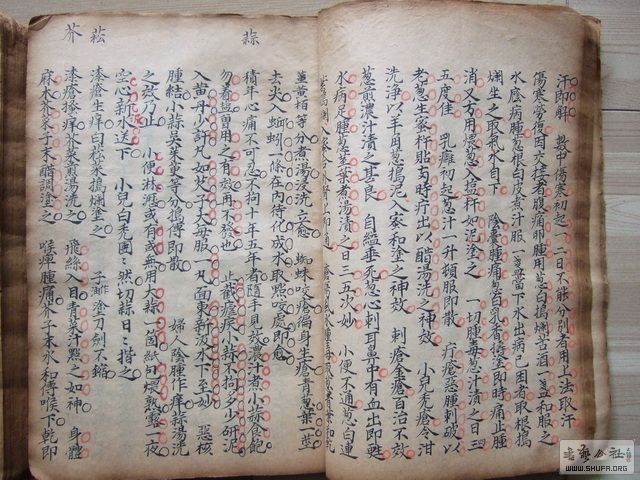 汗即解 數中傷寒初起一二日不能分別者用上法取汗
傷寒勞復因交接者腹痛卵腫用葱白搗爛苦酒一盞和服之
水癊病腫葱根白皮煮汁服一盞當下水出病已困者取根搗
爛坐之取氣水自下 陰囊腫痛葱白乳香搗塗即時痛止腫
消又方用煨葱入塩杵如泥塗之 一切腫毒葱汁漬之日三
五度佳 乳癰初起葱汁一升頓服即散 疔瘡惡腫刺破以
老葱生蜜杵貼兩時疔出以醋湯洗之神效 小兒禿瘡冷泔
洗淨以羊角葱搗泥入蜜和塗之神效 刺瘡金瘡百治不效
葱煎濃汁漬之甚良 自縊垂死葱心刺耳鼻中有血出即甦
水病足腫葱莖葉煮湯漬之日三五次妙 小便不通葱白連
蒜
薑黃柏等分煮湯浸洗立愈 蜘蛛咬瘡徧身生瘡青葱葉一莖
去尖入蚯蚓一條在內待化成水取點咬處即愈
積年心痛不可忍不拘十年五年者隨手見效濃汁煮小蒜食飽
勿着塩曾用之有效再不發也 止截瘧疾小蒜不拘多少研泥
入黃丹少許丸如芡子大每服一丸面東新汲水下至妙 惡核
腫結小蒜吳茱萸等分搗傅即散 婦人陰腫作痒蒜湯洗
之效乃止 小便淋瀝或有或無用大蒜一箇紙包煨熟露一夜
空心新水送下 小兒白禿團團然切蒜日日揩之
菘
漆瘡生痒白菘菜搗爛塗之
芥
漆瘡搔痒芥菜煎湯洗之 飛絲入目青菜汁點之如神 身體
麻木芥菜子末醋調塗之 喉痺腫痛芥子末水和傅喉下乾即